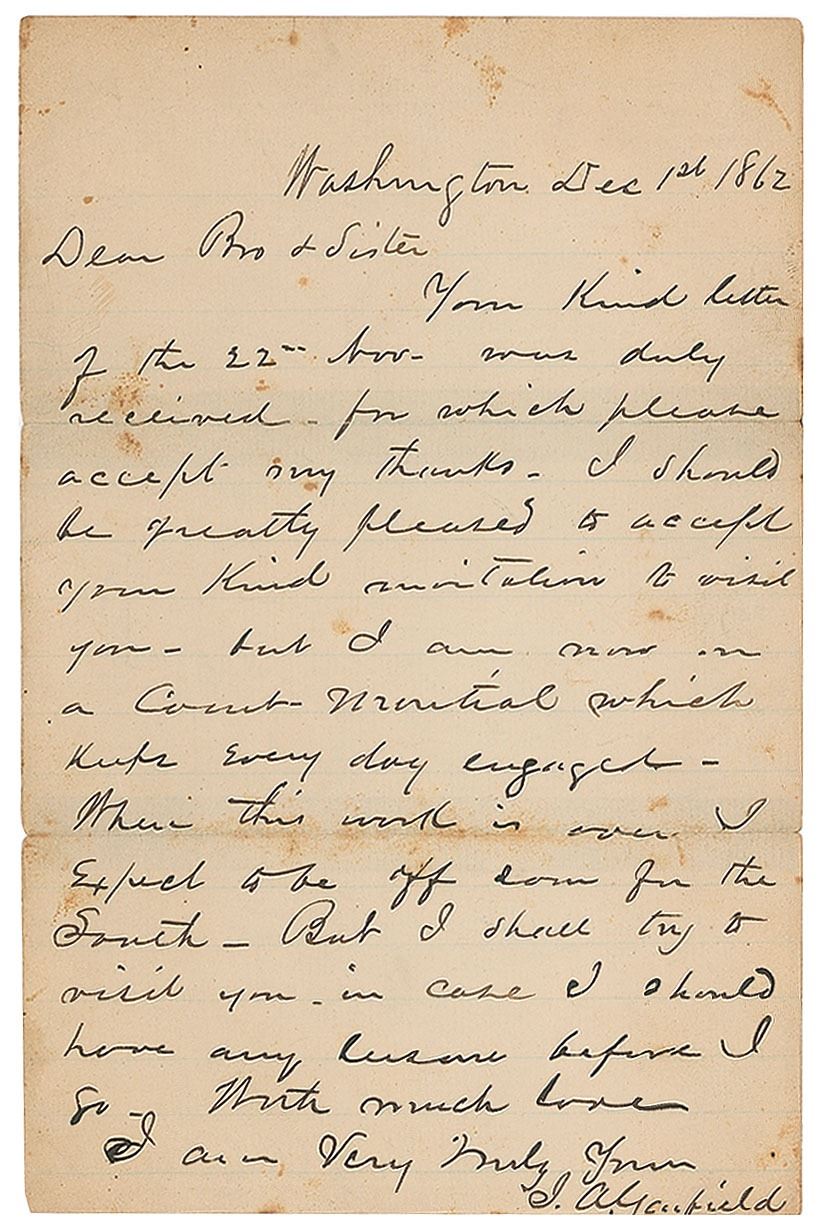 Washington Dec 1st 1862
Dear Bro & Sister
Your Kind letter
of the 22nd Nov- was duly
received - for which please
accept my thanks - I should
be greatly pleased to accept
your Kind invitation to visit
you - but I am now on
a Court-Martial which
Keeps every day engaged -
When this work is over I
Expect to be off soon for the
South - But I shall try to
visit you - in case I should
have any leisure before I
go - With much love
I am Very Truly Yours
J. A. Garfield